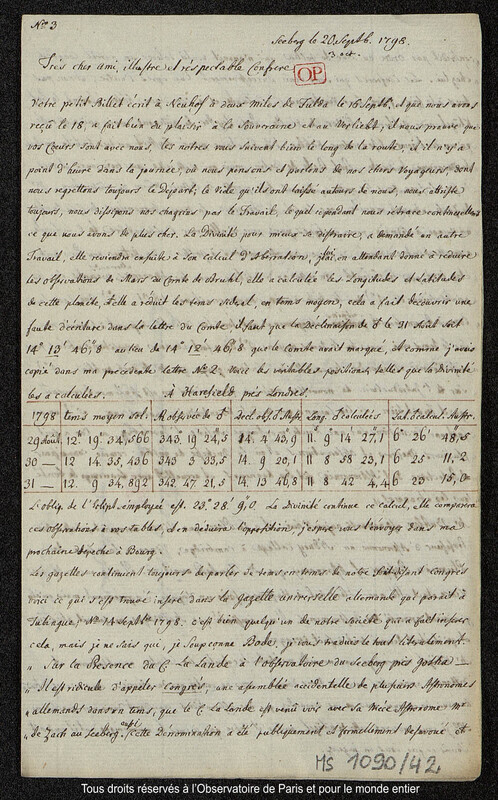 N.° 3
Seeberg le 20 Septb. 1798.
3 oct.
Très cher ami, illustre et réspectable Confrere
OP
Votre petit Billet écrit à Neuhof à deux miles de Fulda le 16 Septb. et que nous avons
reçu le 18, a fait bien du plaisir à la Souveraine et au Verliebt; il nous prouve que
vos Coeurs sont avec nous, les notres vous suivent bien le long de la route, et il n'y a
point d'heure dans la journée, où nous pensons et parlons de nos chers Voyageurs, dont
nous regrettons toujours le Départ; le vide qu'ils ont laissé autour de nous, nous attriste
toujours, nous dissipons nos chagrins par le Travail, lequel cependant nous rétrace continuellement
ce que nous avons de plus cher. La Divinité pour mieux se distraire, a demandé un autre
Travail, elle reviendra ensuite à son calcul d'Aberration; j'ai en attendant donné à réduire
les observations de Mars du Comte de Bruhl, elle a calculée les Longitudes et Latitudes
de cette planète, et elle a réduit les tems sideral, en tems moyen, cela a fait decouvrir une
faute d'écriture dans la lettre du Comte, il faut que la Déclinaison de ♂ le 31 Août soit
14° 13' 46,"8 au lieu de 14° 12' 46,"8 que le Comte avait marqué, et comme j'avois
copié dans ma précédente lettre No. 2. Voici les véritables positions, telles que la divinité
les a calculées. À Harefield près Londres.
1798 tems moyen sol. Æ observée de ♂ Decl. obs. ♂ Austr. Long. ♂ calculées Lat. ♂ calcul. Austr.
29 Août 12 19 34,566 343 19 24,5 14 4 43,9 11 9 14 27,1 6° 26' 48,"5
30 — 12 14 35,436 343 3 33,5 14 9 20,1 11 8 58 23,1 6 25 11,2
31 — 12 9 34,892 342 47 21,5 14 13 46,8 11 8 42 4,4 6 23 15,0
L'obliq. de l'Eclipt. employée est. 23° 28' 9,"0. La divinité continue ce calcul, elle comparera
ces observations à vos tables, et en deduira l'opposition, j'espère vous l'envoyer dans ma
prochaine dépeche à Bourg.
Les gazettes continuent toujours de parler de tems en tems de notre soit-disant congrès
voici ce qui s'est trouvé inséré dans la gazette universelle allemande qui parait à
Tubingue, No. 14 Septbr 1798. c'est bien quelqu'un de notre Société qui a fait inserer
cela, mais je ne sais que, je soupconne Bode, je vous traduis le tout literalement
" Sur la Présence du C. La Lande à l'observatoire du Seeberg près gotha —
" Il est ridicule d'appéler Congrès, une assemblée accidentelle de plusieurs Astronomes
" allemands dans un tems, que le C. La Lande est venu voir avec sa Niece Astronome Mr
" de Zach au Seeberg. cette Dénomination a été publiquement et formellement desavoué et
MS 1090/42
Tous droits réservés à l'Observatoire de Paris et pour le monde entier